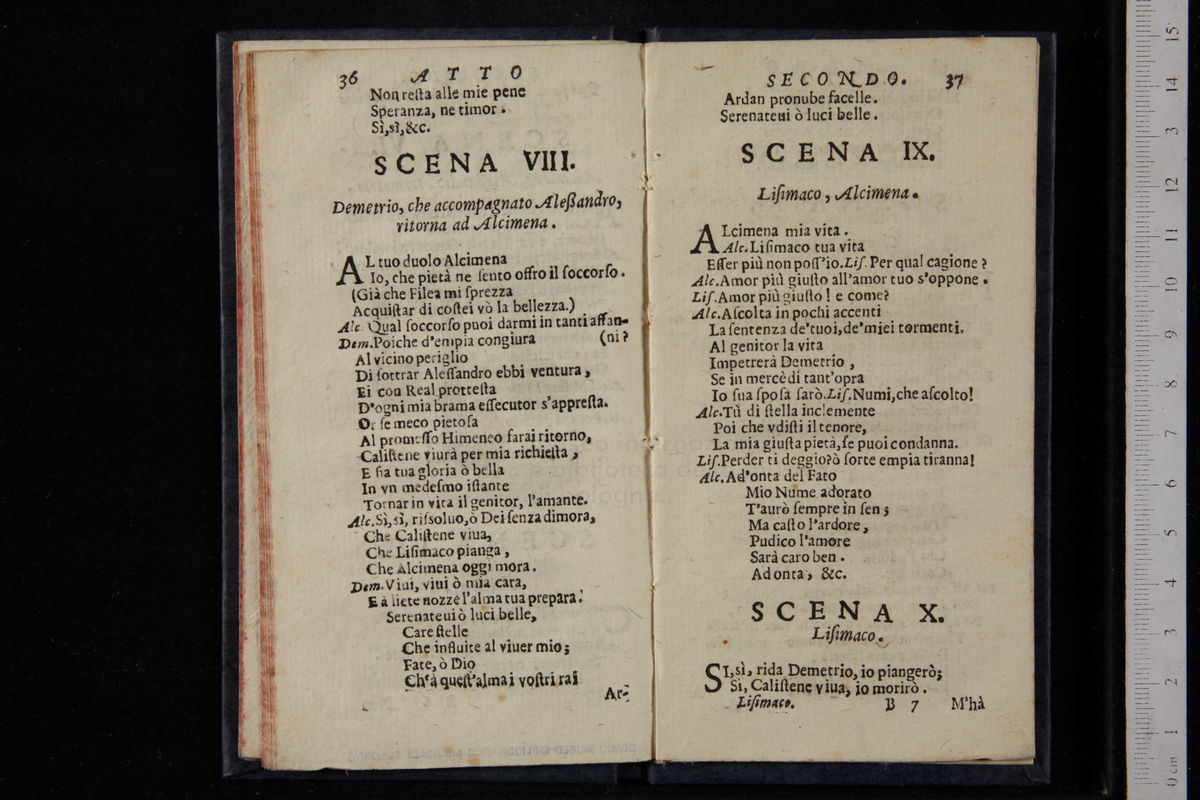 36 ATTO
Non resta alle mie pene
Speranza, ne timor.
Sì, sì, &c.
SCENA VIII.
Demetrio, che accompagnato Aleßandro,
ritorna ad Alcimena.
AL tuo duolo Alcimena
Io, che pietà ne ſento offro il ſoccorſo.
(Già che Filea mi ſprezza
Acquiſtar di coſtei vò la bellezza.)
Alc. Qual ſoccorſo puoi darmi in tanti affan-
Dem. Poiche d'empia congiura (ni?
Al vicino periglio
Di ſottrar Aleſſandro ebbi ventura,
Ei con Real proteſta
D'ogni mia brama eſſecutor s'appreſta.
Or ſe meco pietoſa
Al promeſſo Himeneo farai ritorno,
Caliſtene viurà per mia richieſta,
E ſia tua gloria ò bella
In vn medeſmo iſtante
Tornar in vita il genitor, l'amante.
Alc. Sì, sì, riſſoluo, ò Dei ſenza dimora,
Che Caliſtene viua,
Che Liſimaco pianga,
Che Alcimena oggi mora.
Dem. Viui, viui ò mia cara,
E à liete nozze l'alma tua prepara.
Serenateui ò luci belle,
Care ſtelle
Che influite al viuer mio;
Fate, ò Dio
Ch'à queſt'alma i voſtri rai
Ar-
SECONDO. 37
Ardan pronube facelle.
Serenateui ò luci belle.
SCENA IX.
Liſimaco, Alcimena.
ALcimena mia vita.
Alc. Liſimaco tua vita
Eſſer più non poſſ'io. Liſ. Per qual cagione?
Alc. Amor più giuſto all'amor tuo s'oppone.
Liſ. Amor più giuſto! e come?
Alc. Aſcolta in pochi accenti
La ſentenza de'tuoi, de'miei tormenti.
Al genitor la vita
Impetrerà Demetrio,
Se in mercè di tant'opra
Io ſua ſpoſa ſarò. Liſ. Numi, che aſcolto!
Alc. Tù di ſtella inclemente
Poi che vdiſti il tenore,
La mia giuſta pietà, ſe puoi condanna.
Liſ. Perder ti deggio? ò ſorte empia tiranna!
Alc. Ad'onta del Fato
Mio Nume adorato
T'aurò ſempre in ſen;
Ma caſto l'ardore,
Pudico l'amore
Sarà caro ben.
Ad onta, &c.
SCENA X.
Liſimaco.
SI, sì, rida Demetrio, io piangerò;
Sì, Caliſtene viua, io morirò.
Liſimaco. B 7 M'hà